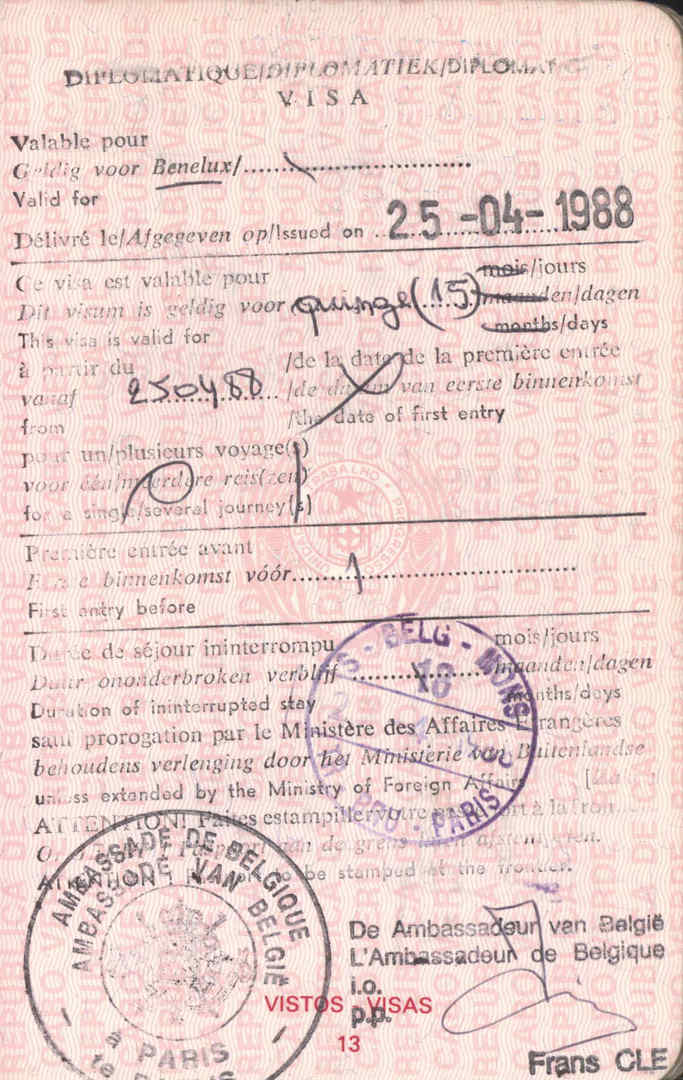 DIPLOMATIQUE/DIPLOMATIEK/DIPLOMATIC
VISA
Valable pour
Geldig voor Benelux/
Valid for
Délivré le/Afgegeven op/Issued on 25-04-1988
Ce visa est valable pour mois/jours
Dit visum is geldig voor quinze (15) maanden/dagen
This visa is valid for months/days
à partir du /de la date de la première entrée
vanaf 250488 /de datum van eerste binnenkomst
from /the date of first entry
pour un/plusieurs voyage(s)
voor één/meerdere reis(zen)
for a single/several journey(s)
Première entrée avant
Eerste binnenkomst vóór
First entry before
Durée de séjour ininterrompu mois/jours
Duur ononderbroken verblijf maanden/dagen
Duration of ininterrupted stay months/days
sauf prorogation par le Ministère des Affaires Etrangères
behoudens verlenging door het Ministerie van Buitenlandse
unless extended by the Ministry of Foreign Affairs
ATTENTION! Faites estampiller votre passeport à la
be stamped at the frontier.
BELG - MONS
18
PARIS
AMBASSADE DE BELGIQUE
AMBASSADE VAN BELGIË
à PARIS
te PARIJS
De Ambassadeur van België
L'Ambassadeur de Belgique
i.o.
p.p.
VISTOS VISAS
13
Frans CLE